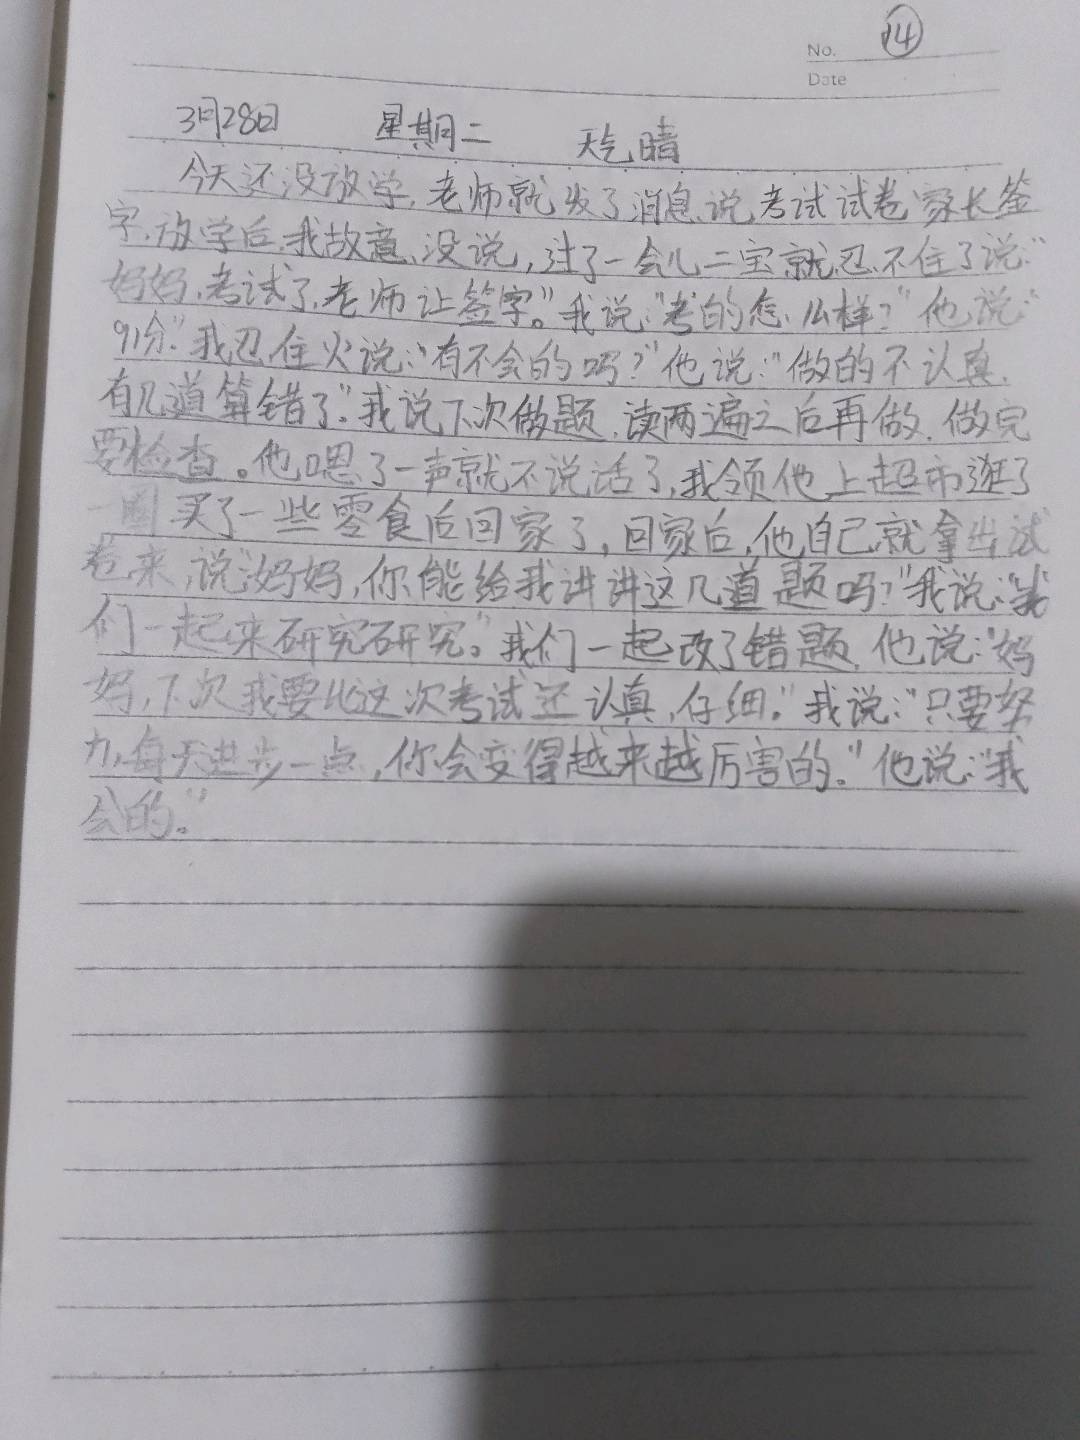 No. 14
Date
3月28日 星期二 天气晴
今天还没放学,老师就发了消息说考试试卷家长签
字,放学后,我故意没说,过了一会儿二宝就忍不住了说:“
妈妈,考试了,老师让签字”。我说:“考的怎么样?”他说:“
91分.”我忍住火说:“有不会的吗?”他说:“做的不认真,
有几道算错了.”我说下次做题,读两遍之后再做,做完
要检查。他嗯了一声就不说话了,我领他上超市逛了
一圈买了一些零食后回家了,回家后,他自己就拿出试
卷来,说:“妈妈,你能给我讲讲这几道题吗?”我说:“我
们一起来研究研究。”我们一起改了错题,他说:“妈
妈,下次我要比这次考试还认真,仔细.”我说:“只要努
力,每天进步一点,你会变得越来越厉害的.”他说:“我
会的。”